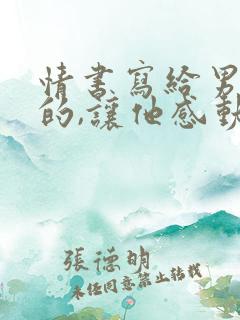 情書寫給男
的,讓他感動
張德明
未经同意禁止转载